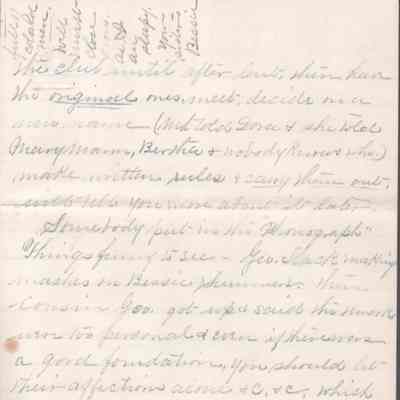 the club until after lent, then have
the original ones, meet, decide on a
new name (Net told Dora & she told
Mary Mann, Bertha & nobody knows who)
make written rules & carry them out.
will tell you more about it later.
Somebody put in the "Phonograph"
"Things funny to see - Geo. Slack making
mashes on Bessie Then
Cousin Geo. got up & said the
were too personal & even if there were
a good foundation, you should let
their affections alone & C, & C, which
full
well
must
close
as I
am
sleepy.
Your
Bessie